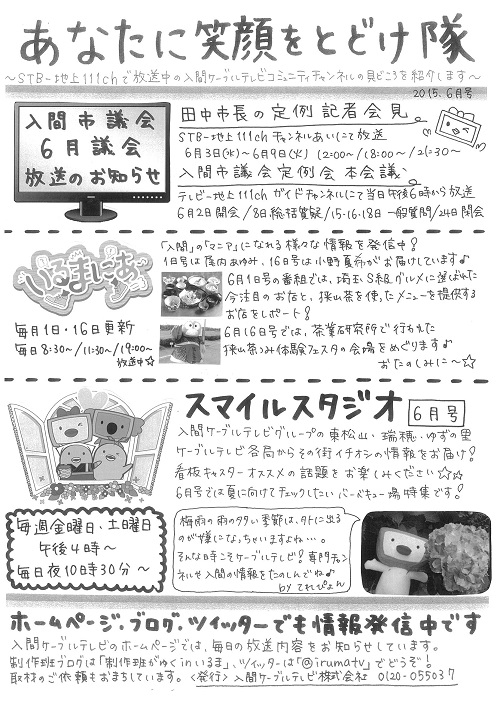 あなたに笑顔をとどけ隊
～STB-地上111chで放送中の入間ケーブルテレビコミュニティチャンネルの見どころを紹介します～
2015.6月号
入間市議会
6月議会
放送のお知らせ
田中市長の定例記者会見
STB-地上111ch チャンネルあいにて放送
6月3日(水)～6月9日(火) 12:00～/18:00～/21:30～
入間市議会定例会 本会議
テレビ-地上111ch ガイドチャンネルにて当日午後6時から放送
6月2日開会/8日総括質疑/15・16・18日一般質問/24日閉会
いるまにあ
毎月1日・16日更新
毎日8:30～/11:30～/19:00～
放送中☆
「入間」の「マニア」になれる様々な情報を発信中!
1日号は尾内あゆみ、16日号は小野真希がお届けしています♪
6月1日号の番組では、埼玉S級グルメに選ばれた
今注目のお店と、狭山茶を使ったメニューを提供する
お店をレポート!
6月16日号では、茶業研究所で行われた
狭山茶つみ体験フェスタの会場をめぐります♪
おたのしみに～☆
スマイルスタジオ 6月号
入間ケーブルテレビグループの東松山・瑞穂・ゆずの里
ケーブルテレビ各局からその街イチオシの情報をお届け!
看板キャスターオススメの話題をお楽しみください☆☆
6月号では夏に向けてチェックしたいバーベキュー場特集です!
毎週金曜日、土曜日
午後4時～
毎日夜10時30分～
梅雨の雨の多い季節は、外に出る
のが嫌になっちゃいますよね…。
そんな日時こそケーブルテレビ!専門チャン
ネルや入間の情報をたのしんでね♪
by てれぴょん
ホームページ、ブログ、ツイッターでも情報発信中です
入間ケーブルテレビのホームページでは、毎日の放送内容をお知らせしています。
制作班ブログは「制作班がゆく in いるま」、ツイッターは「@irumatv」でどうぞ!
取材のご依頼もおまちしています。<発行>入間ケーブルテレビ株式会社 0120-055037